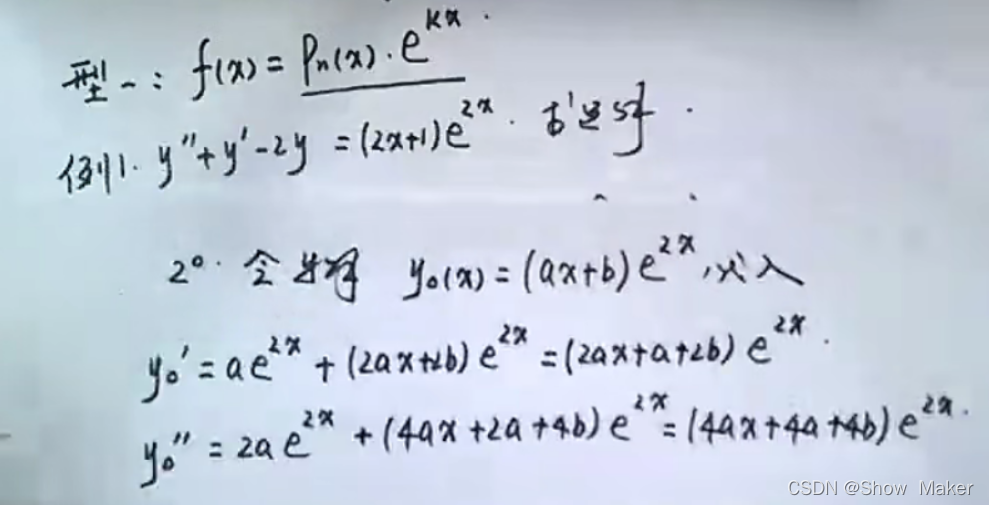 型一: f(x) = Pn(x)·e^{kx}.
例1. y''+y'-2y = (2x+1)e^{2x}. 求通解.
2°. 令特解 y₀(x) = (ax+b)e^{2x}, 代入
y₀' = ae^{2x} + (2ax+2b)e^{2x} = (2ax+a+2b)e^{2x}.
y₀'' = 2ae^{2x} + (4ax+2a+4b)e^{2x} = (4ax+4a+4b)e^{2x}.
CSDN @Show Maker